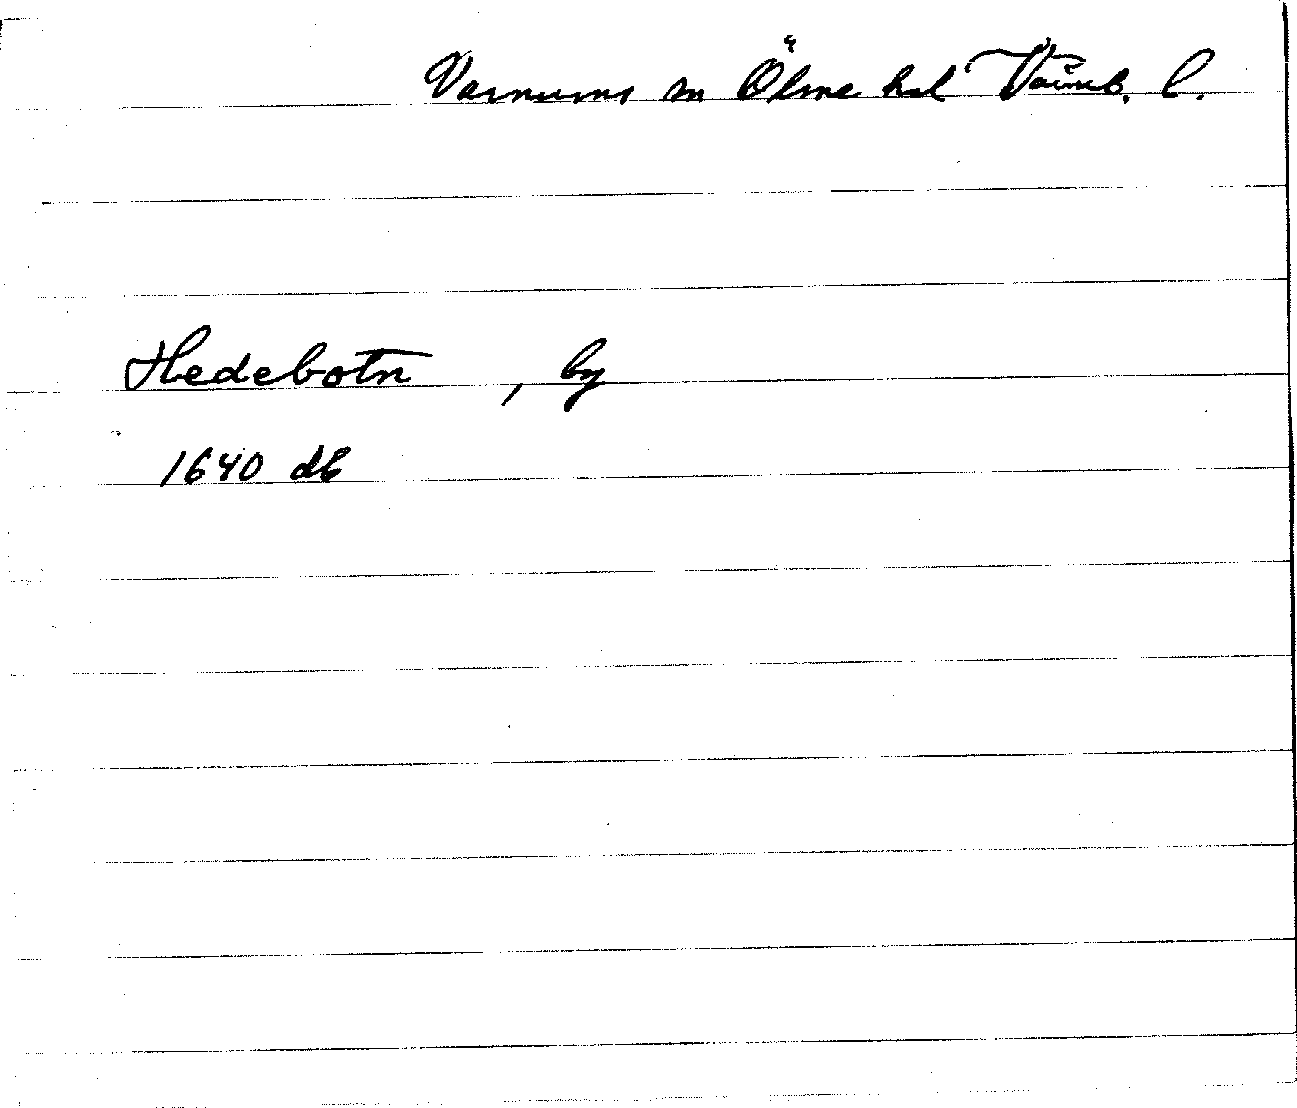 Varnums sn Ölme hd Värml. l.
Hedebotn , by
1640 db